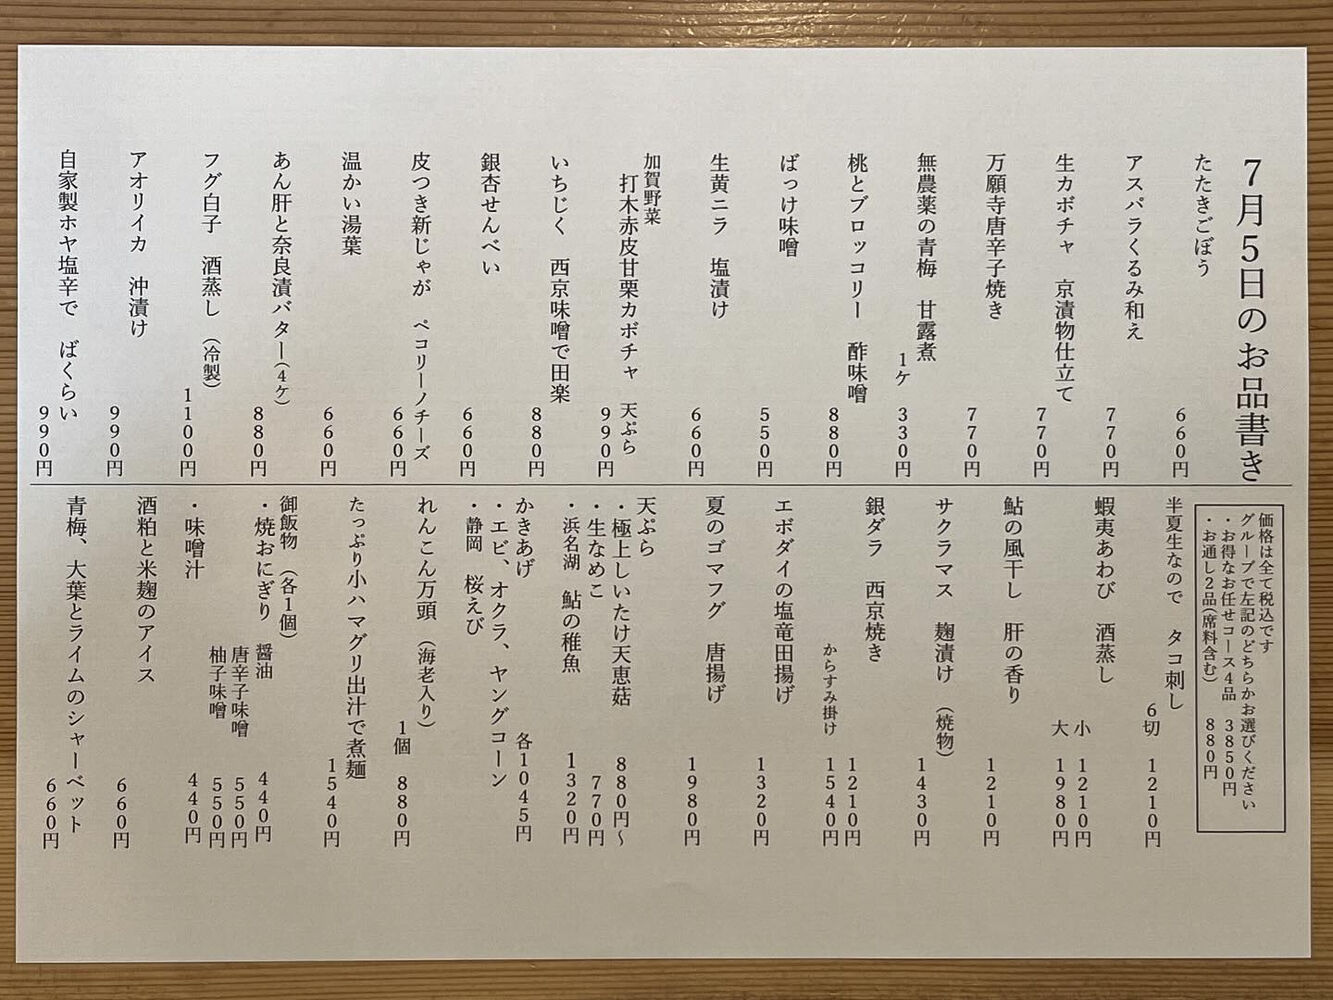 7月5日のお品書き
たたきごぼう
660円
アスパラくるみ和え
770円
生カボチャ 京漬物仕立て
770円
万願寺唐辛子焼き
770円
無農薬の青梅 甘露煮
1ケ 330円
桃とブロッコリー 酢味噌
880円
ばっけ味噌
550円
生黄ニラ 塩漬け
660円
加賀野菜
打木赤皮甘栗カボチャ 天ぷら
990円
いちじく 西京味噌で田楽
880円
銀杏せんべい
660円
皮つき新じゃが ペコリーノチーズ
660円
温かい湯葉
660円
あん肝と奈良漬バター(4ケ)
880円
フグ白子 酒蒸し (冷製)
1100円
アオリイカ 沖漬け
990円
自家製ホヤ塩辛で ばくらい
990円
価格は全て税込です
グループで左記のどちらかお選びください
・お得なお任せコース4品 3850円
・お通し2品(席料含む) 880円
半夏生なので タコ刺し
6切 1210円
蝦夷あわび 酒蒸し
小 1210円
大 1980円
鮎の風干し 肝の香り
1210円
サクラマス 麹漬け (焼物)
1430円
銀ダラ 西京焼き
1210円
からすみ掛け 1540円
エボダイの塩竜田揚げ
1320円
夏のゴマフグ 唐揚げ
1980円
天ぷら
・極上しいたけ天恵菇 880円〜
・生なめこ 770円
・浜名湖 鮎の稚魚 1320円
かきあげ 各1045円
・エビ、オクラ、ヤングコーン
・静岡 桜えび
れんこん万頭 (海老入り)
1個 880円
たっぷり小ハマグリ出汁で煮麺
1540円
御飯物 (各1個)
・焼おにぎり 醤油 440円
唐辛子味噌 550円
柚子味噌 550円
・味噌汁 440円
酒粕と米麹のアイス
660円
青梅、大葉とライムのシャーベット
660円